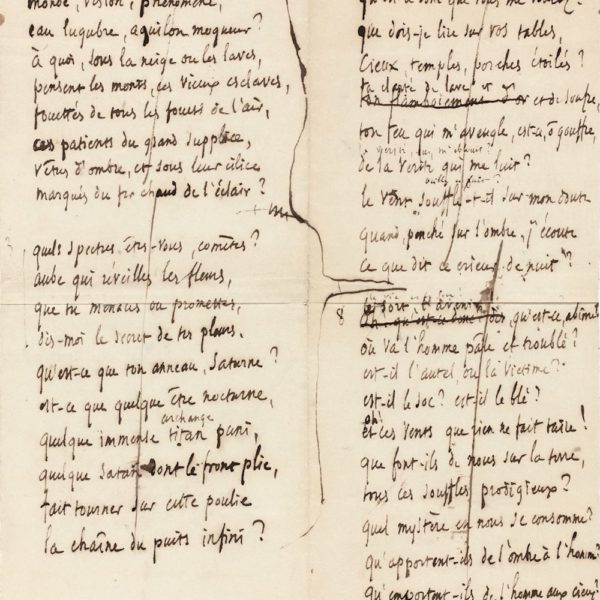 monde, vision, phénomène,
eau lugubre, aquilon moqueur ?
à quoi, sous la neige ou les laves,
pensent les monts, ces vieux esclaves,
fouettés de tous les fouets de l'air,
ces patients du grand supplice,
vêtus d'ombre, et sous leur cilice
marqués du fer chaud de l'éclair ?
quels spectres êtes-vous, comètes ?
aube qui réveilles les fleurs,
que tu menaces ou promettes,
dis-moi le secret de tes pleurs.
qu'est-ce que ton anneau, Saturne ?
est-ce que quelque être nocturne,
archange
quelque immense titan puni,
quelque Satan dont le front plie,
fait tourner sur cette poulie
la chaîne du puits infini ?
que dois-je lire sur vos tables,
Cieux, temples, porches étoilés ?
ta clarté de lave et
ton flamboiement d'or et de soufre,
ton feu qui m'aveugle, est-ce, ô gouffre,
de la vérité qui me luit ?
le vent souffle-t-il sur mon doute
quand, penché sur l'ombre, j'écoute
ce que dit ce crieur de nuit ?
8
qu'est-ce, abîme
où va l'homme pâle et troublé ?
est-il l'autel ou la victime ?
est-il le soc ? est-il le blé ?
oh !
et ces vents que rien ne fait taire !
que font-ils de nous sur la terre,
tous ces souffles prodigieux ?
quel mystère en nous se consomme ?
qu'apportent-ils de l'ombre à l'homme ?
qu'emportent-ils de l'homme aux cieux ?